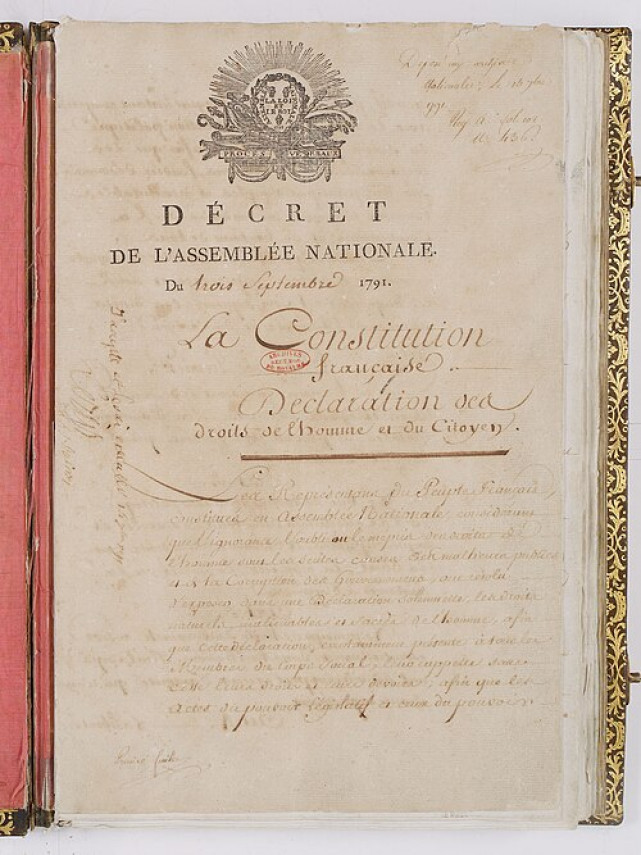 LA LOI
ET
LE ROI
PROCÈS VERBAUX
1791.
DÉCRET
DE L'ASSEMBLÉE NATIONALE.
Du trois Septembre 1791.
La Constitution
française
ARCHIVES
DU ROYAUME
Déclaration des
droits de l'homme et du Citoyen.
Les Représentans du Peuple Français,
constitués en Assemblée Nationale, considérant
que l'ignorance, l'oubli ou le mépris des droits de
l'homme sont les seules causes des malheurs publics
et de la Corruption des Gouvernemens, ont résolu
d'exposer dans une Déclaration solemnelle, les droits
naturels, inaliénables et sacrés de l'homme, afin
que cette déclaration, constamment présente à tous les
Membres du corps social, leur rappelle sans
cesse leurs droits et leurs devoirs; afin que les
actes du pouvoir législatif et ceux du pouvoir